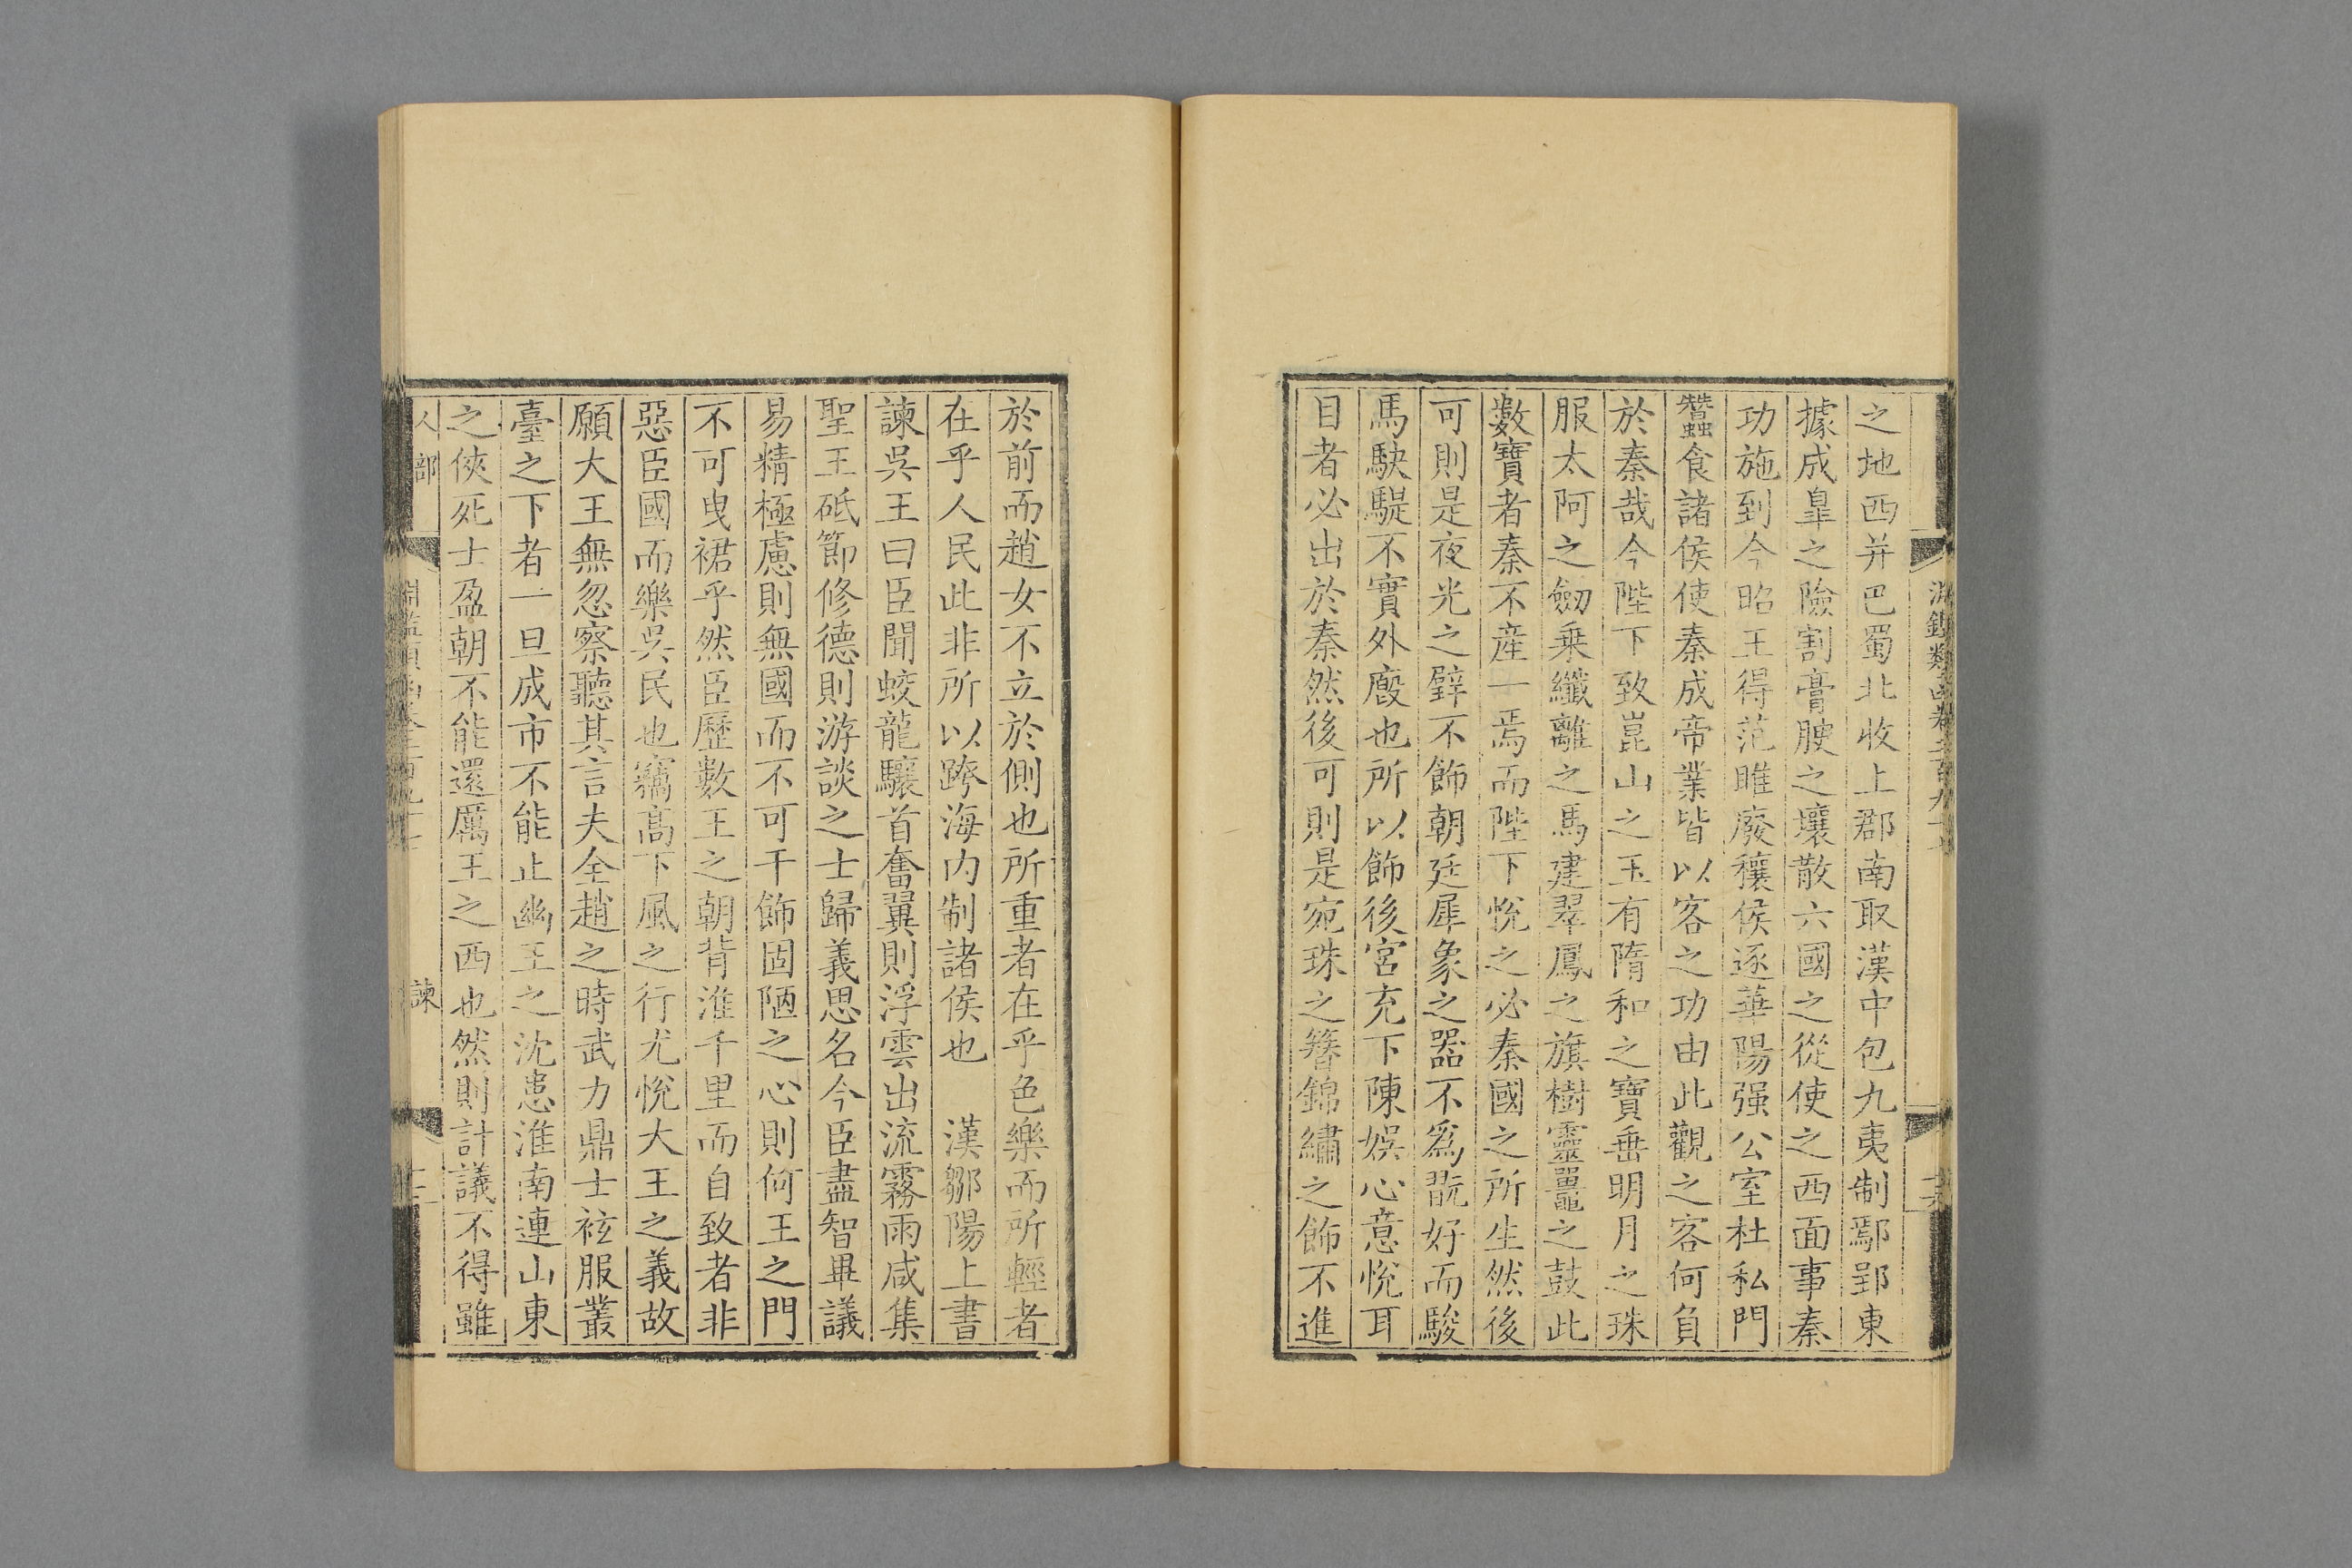 之地西并巴蜀北收上郡南取漢中包九夷制鄢郢東
據成臯之險割膏腴之壤散六國之從使之西面事秦
功施到今昭王得范雎廢穰侯逐華陽强公室杜私門
蠶食諸侯使秦成帝業皆以客之功由此觀之客何負
於秦哉今陛下致崑山之玉有隋和之寶垂明月之珠
服太阿之劒乗纖離之馬建翠鳳之旗樹靈鼉之鼓此
數寶者秦不産一焉而陛下悅之必秦國之所生然後
可則是夜光之璧不飾朝廷犀象之器不爲翫好而駿
馬駃騠不實外廐也所以飾後宮充下陳娛心意悅耳
目者必出於秦然後可則是宛珠之簪錦繡之飾不進
於前而趙女不立於側也所重者在乎色樂而所輕者
在乎人民此非所以跨海内制諸侯也 漢鄒陽上書
諫吳王曰臣聞蛟龍驤首奮翼則浮雲出流霧雨咸集
聖王砥節修德則游談之士歸義思名今臣盡智畢議
易精極慮則無國而不可干飾固陋之心則何王之門
不可曳裾乎然臣歷數王之朝背淮千里而自致者非
惡臣國而樂吳民也竊高下風之行尤悅大王之義故
願大王無忽察聽其言夫全趙之時武力鼎士袨服叢
臺之下者一旦成市不能止幽王之沈患淮南連山東
之俠死士盈朝不能還厲王之西也然則計議不得雖
人部
諫